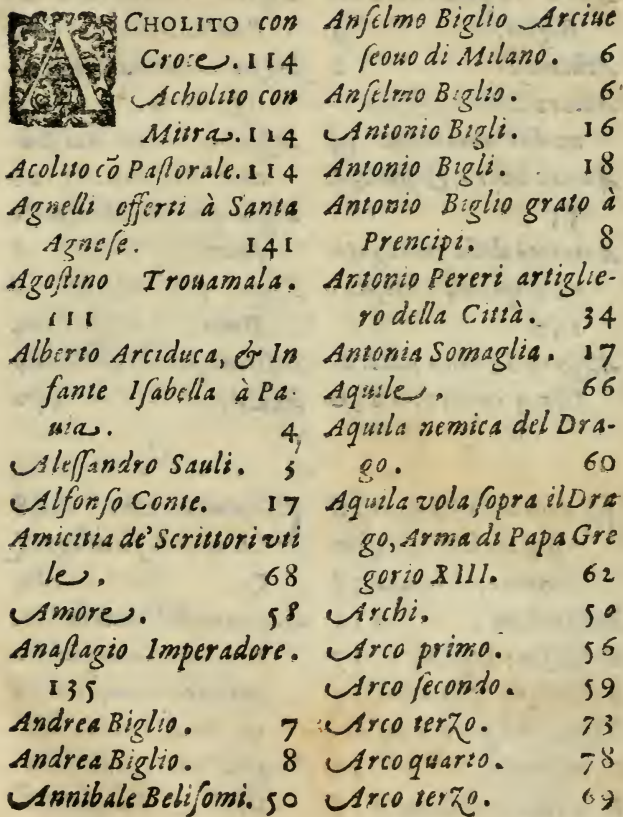 ACHOLITO con
Croce. 114
Acholito con
Mitra. 114
Acolito cō Paſtorale. 114
Agnelli offerti à Santa
Agneſe. 141
Agoſtino Trouamala.
111
Alberto Arciduca, & In
fante Iſabella à Pa-
uia. 4
Aleſſandro Sauli. 5
Alfonſo Conte. 17
Amicitia de' Scrittori vti
le. 68
Amore. 58
Anaſtagio Imperadore.
135
Andrea Biglio. 7
Andrea Biglio. 8
Annibale Beliſomi. 50
Anſelmo Biglio Arciue
ſcouo di Milano. 6
Anſelmo Biglio. 6
Antonio Bigli. 16
Antonio Bigli. 18
Antonio Biglio grato à
Prencipi. 8
Antonio Pereri artiglie-
ro della Città. 34
Antonia Somaglia. 17
Aquile. 66
Aquila nemica del Dra-
go. 60
Aquila vola ſopra il Dra
go, Arma di Papa Gre
gorio XIII. 62
Archi. 50
Arco primo. 56
Arco ſecondo. 59
Arco terzo. 73
Arco quarto. 78
Arco terzo. 69